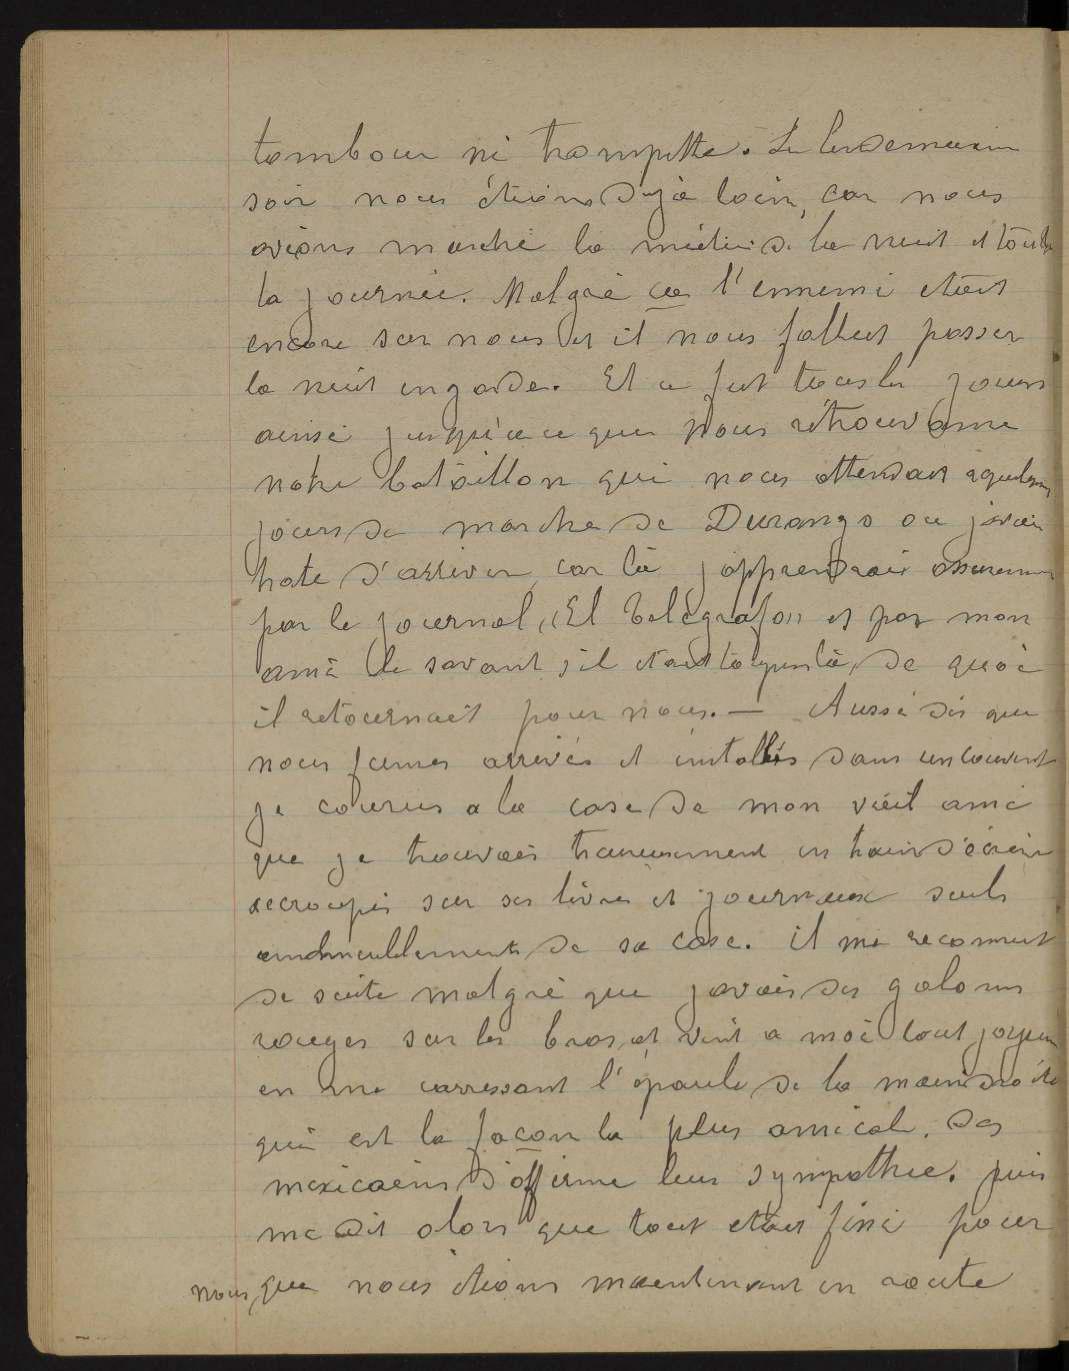 tambour ni trompette. Le lendemain
soir nous étions déjà loin, car nous
avions marché la moitié de la nuit et toute
la journée. Malgré ça l'ennemi etait
encore sur nous et il nous fallut passer
la nuit en garde. Et ce fut tous les jours
ainsi jusqu'à ce que nous rétrouvame
notre bataillon qui nous attendait a quelques
jours de marche de Durango ou j'avais
hate d'arriver, car là j'apprendrais assurement
par le journal, "El Telégrafo" et par mon
ami le savant, s'il etait toujours là, de quoi
il retournait pour nous. — Aussi dès que
nous fumes arrivés et installés dans un couvent
je courus a la case de mon vieil ami
que je trouvais heureusement en train d'écrire
accroupis sur ses livres et journaux seuls
ameublements de sa case. il me reconnut
de suite malgré que j'avais des galons
rouges sur les bras, et vint a moi tout joyeux
en me carressant l'épaule de la main droite
qui est la façon la plus amicale, des
mexicains d'affirmer leur sympathie. puis
me dit alors que tout etait fini pour
nous, que nous étions maintenant en route